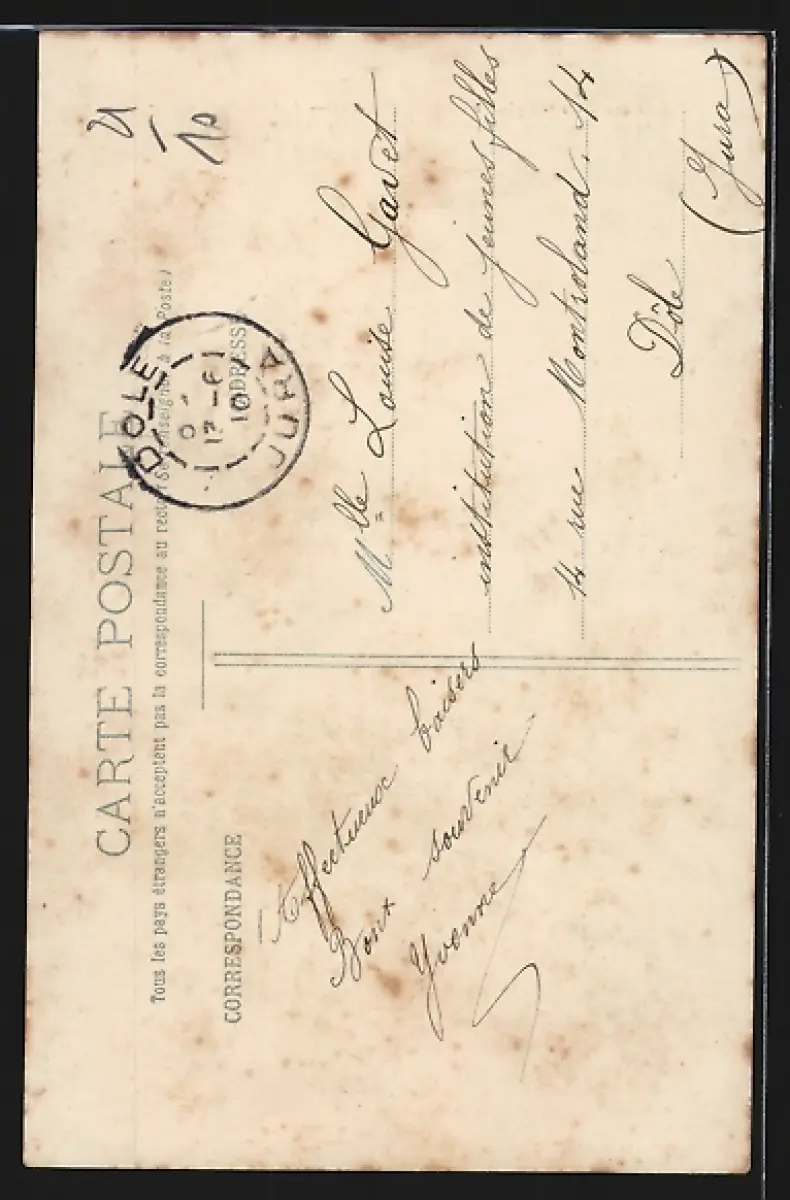 CARTE POSTALE
Tous les pays étrangers n'acceptent pas la correspondance au recto (Se renseigner à la Poste)
CORRESPONDANCE
ADRESSE
DOLE
17 - 6
10
JURA
Affectueux baisers
Bons souvenir
Yvonne
Mlle Louise Gavet
institution de jeunes filles
14 rue Montroland. 14
Dôle
(Jura)